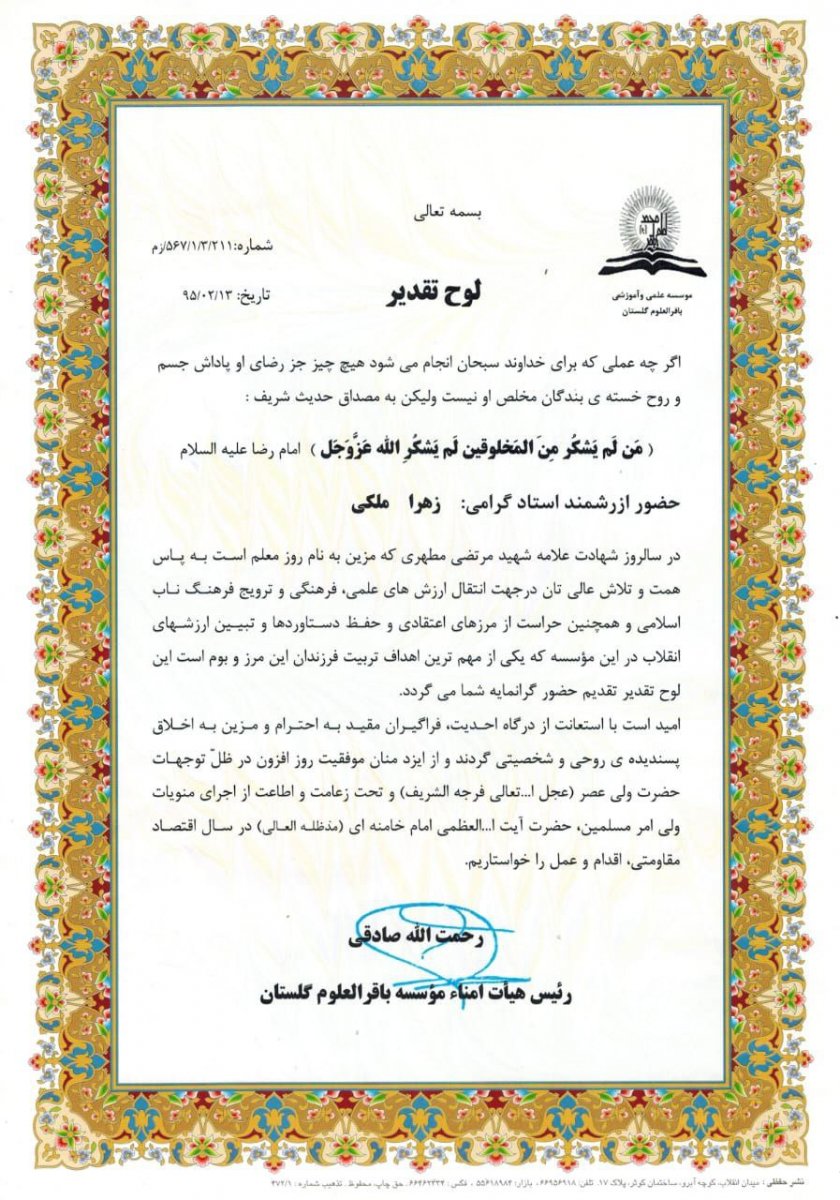 بسمه تعالی
شماره: ۵۶۷/۱/۳/۲۱۱/زم
موسسه علمی وآموزشی
باقرالعلوم گلستان
تاریخ: ۹۵/۰۲/۱۳
لوح تقدیر
اگر چه عملی که برای خداوند سبحان انجام می شود هیچ چیز جز رضای او پاداش جسم
و روح خسته ی بندگان مخلص او نیست ولیکن به مصداق حدیث شریف :
( مَن لَم یَشکُر مِنَ المَخلوقین لَم یَشکُرِ الله عَزَّوَجَل ) امام رضا علیه السلام
حضور ارزشمند استاد گرامی: زهرا ملکی
در سالروز شهادت علامه شهید مرتضی مطهری که مزین به نام روز معلم است به پاس
همت و تلاش عالی تان درجهت انتقال ارزش های علمی، فرهنگی و ترویج فرهنگ ناب
اسلامی و همچنین حراست از مرزهای اعتقادی و حفظ دستاوردها و تبیین ارزشهای
انقلاب در این مؤسسه که یکی از مهم ترین اهداف تربیت فرزندان این مرز و بوم است این
لوح تقدیر تقدیم حضور گرانمایه شما می گردد.
امید است با استعانت از درگاه احدیت، فراگیران مقید به احترام و مزین به اخلاق
پسندیده ی روحی و شخصیتی گردند و از ایزد منان موفقیت روز افزون در ظلّ توجهات
حضرت ولی عصر (عجل ا...تعالی فرجه الشریف) و تحت زعامت و اطاعت از اجرای منویات
ولی امر مسلمین، حضرت آیت ا...العظمی امام خامنه ای (مدظله العالی) در سال اقتصاد
مقاومتی، اقدام و عمل را خواستاریم.
رحمت الله صادقی
رئیس هیأت امناء مؤسسه باقرالعلوم گلستان
نشر حفظی : میدان انقلاب، کوچه آبرو، ساختمان کوثر، پلاک ۱۷. تلفن: ۶۶۹۵۶۹۱۸ . بازار: ۵۵۶۱۸۹۸۴ . فکس : ۶۶۴۶۲۴۳۴ . حق چاپ محفوظ . تذهیب شماره : ۴۷۲/۱